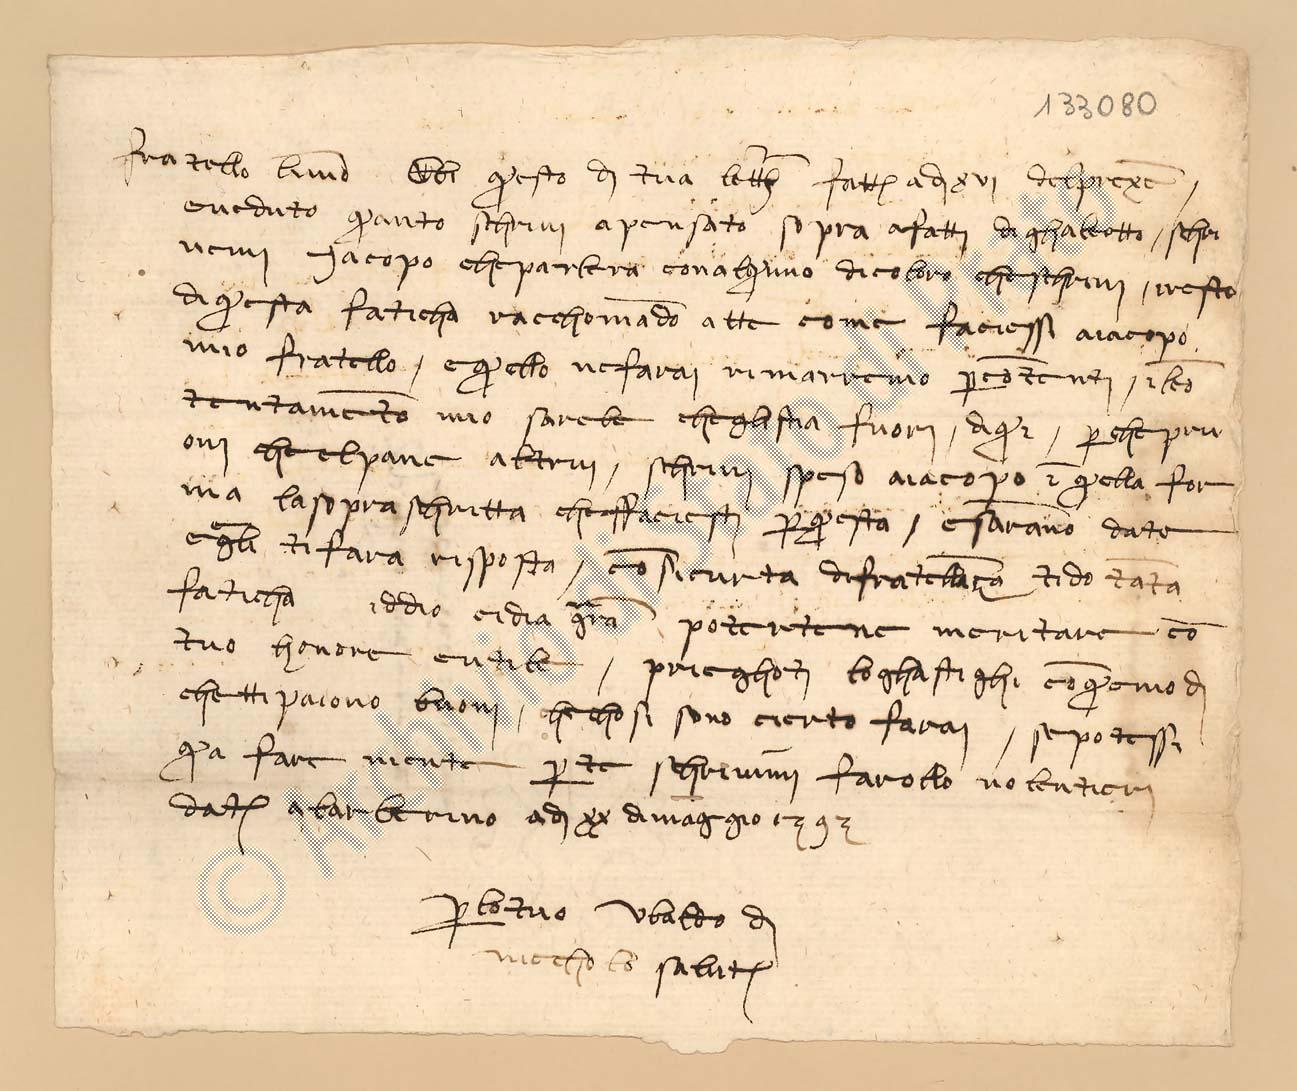 133080
fratello
questo di tua lettera fatta a dì xvi del prexẽ /
e veduto quanto schrivi a pensato sopra a fatti di ghaletto / schri
vemi Jacopo che partira con alquno di coloro che schrivi / resto
di questa faticha racchomãdo a tte come faciessi a iacopo
mio fratello / e quello ne farai rimarremo per cõtenti /
tentamẽto mio sarebe che gli stia fuori / di qui / perche pru
ovi che el pane altrui / schrivi speso a iacopo ĩ quella for
ma la sopra schritta che ffaciesti per questa / e sarãno date
e egli ti fara risposta / cõ sicurta di fratellãça ti do tãta
faticha iddio ci dia grã potertene meritare cõ
tuo honore e utile / prieghoti lo ghastighi cõ quel modi
che tti paiono buoni / che chosi sono cierto farai / se potessi
qua fare niente per te schrivimi farollo volentieri
data a barberino a dì xx di maggio 1392
per lo tuo Ubaldo di
niccholo salute
© Archivio di Stato di Prato